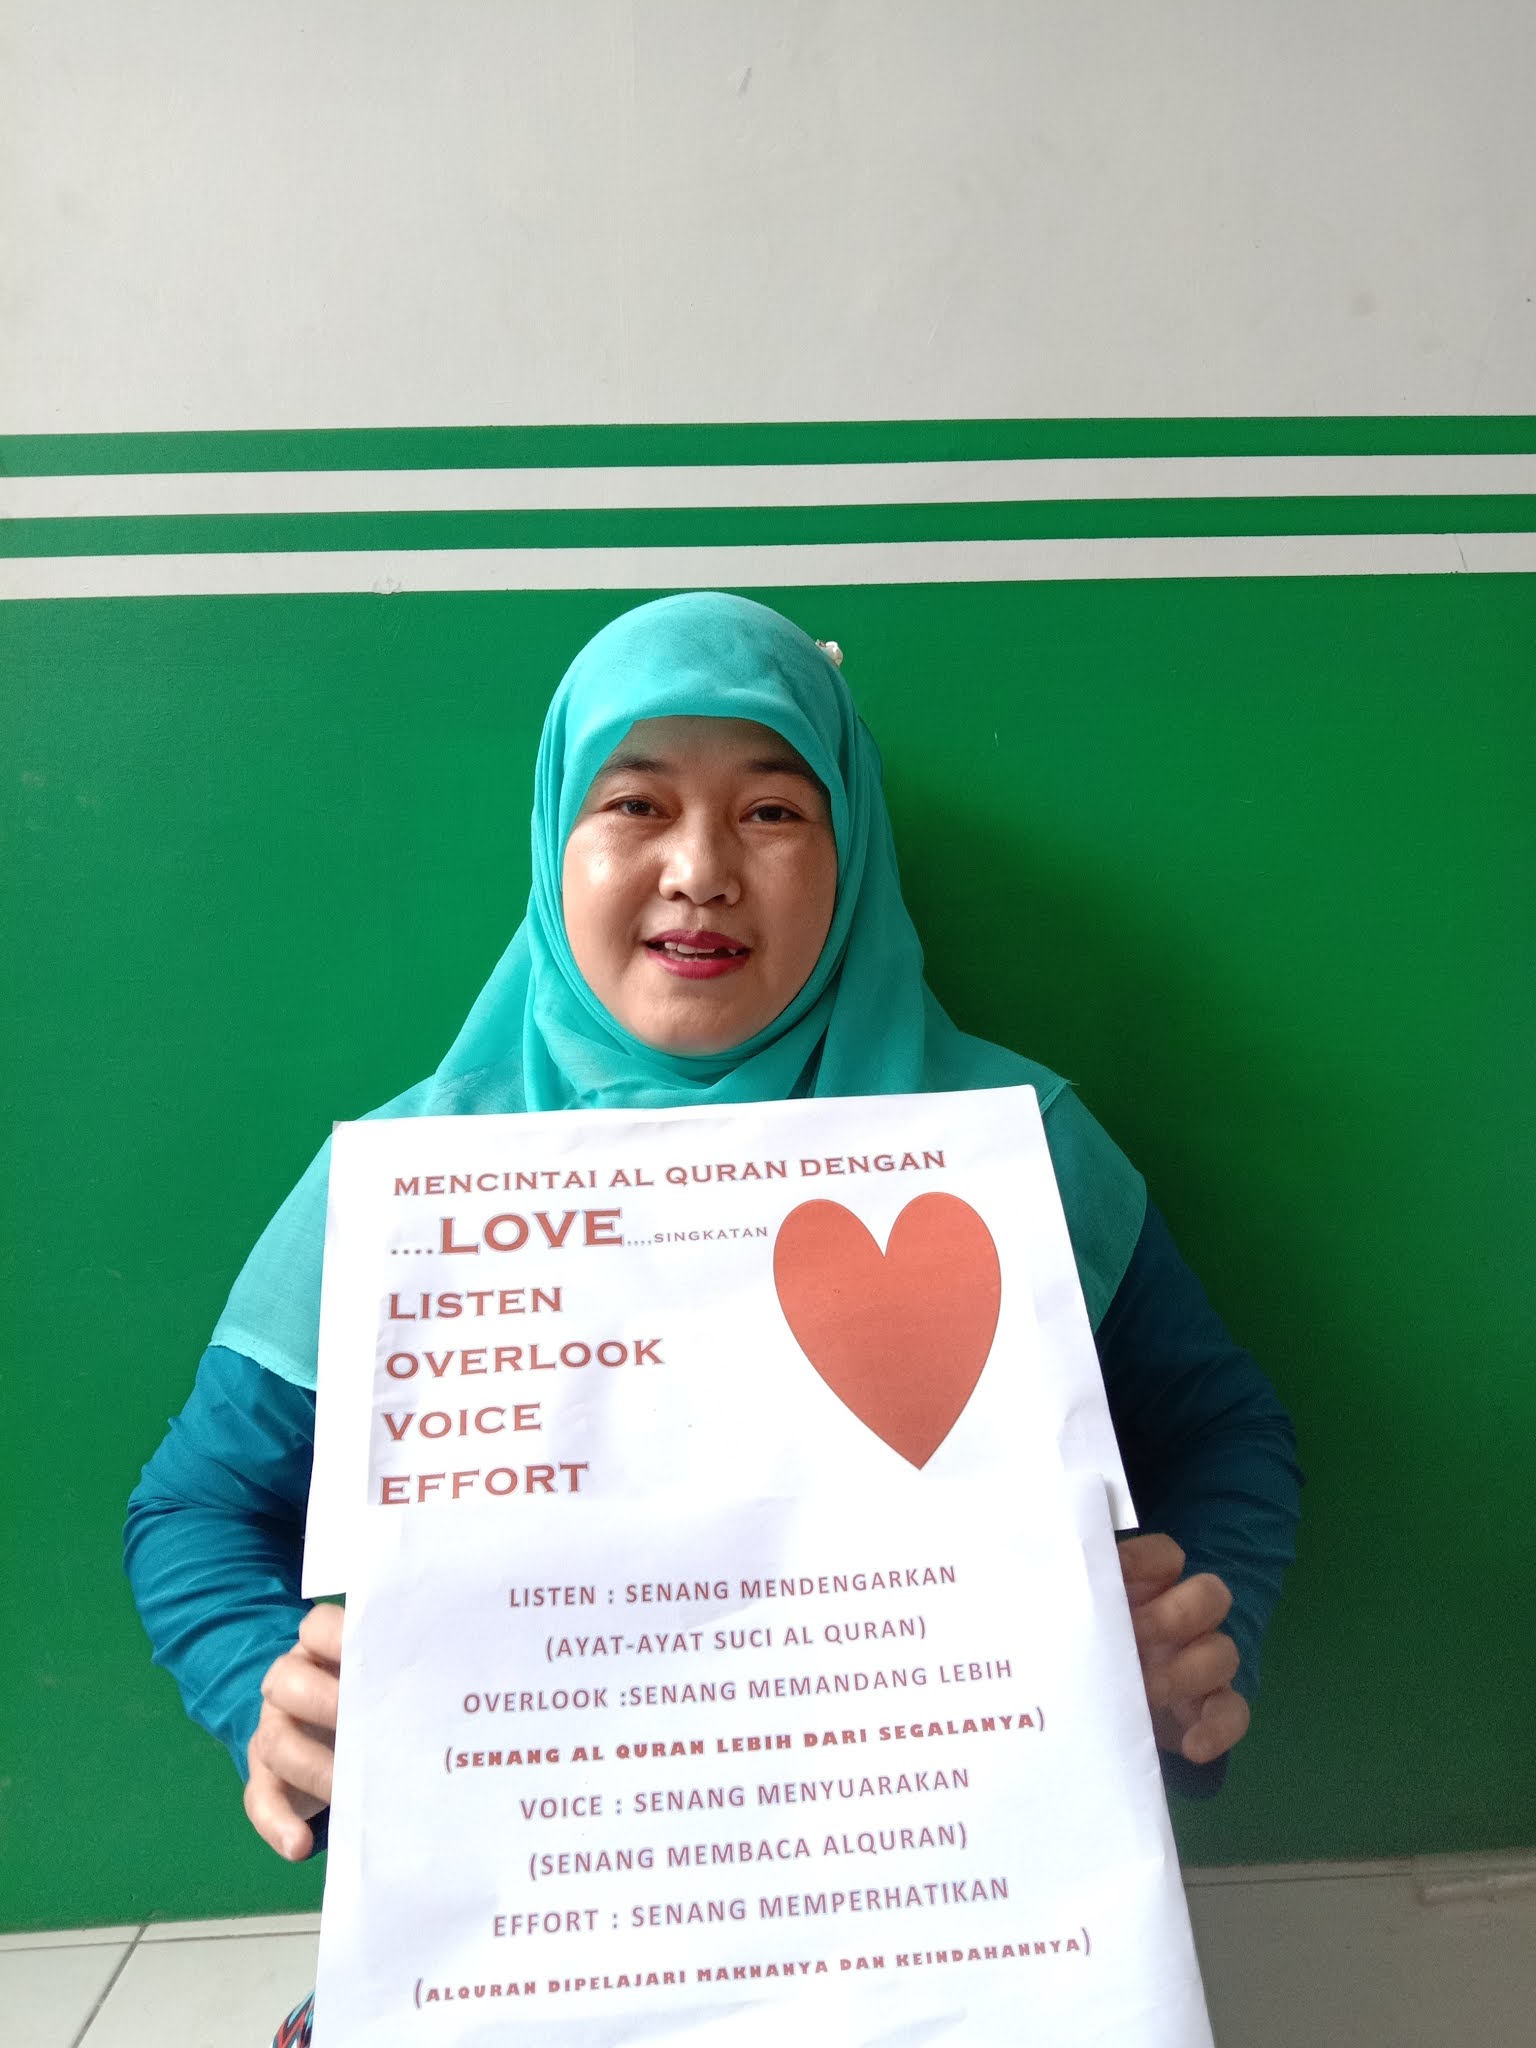 MENCINTAI AL QURAN DENGAN
....LOVE....SINGKATAN
LISTEN
OVERLOOK
VOICE
EFFORT
LISTEN : SENANG MENDENGARKAN
(AYAT-AYAT SUCI AL QURAN)
OVERLOOK :SENANG MEMANDANG LEBIH
(SENANG AL QURAN LEBIH DARI SEGALANYA)
VOICE : SENANG MENYUARAKAN
(SENANG MEMBACA ALQURAN)
EFFORT : SENANG MEMPERHATIKAN
(ALQURAN DIPELAJARI MAKNANYA DAN KEINDAHANNYA)